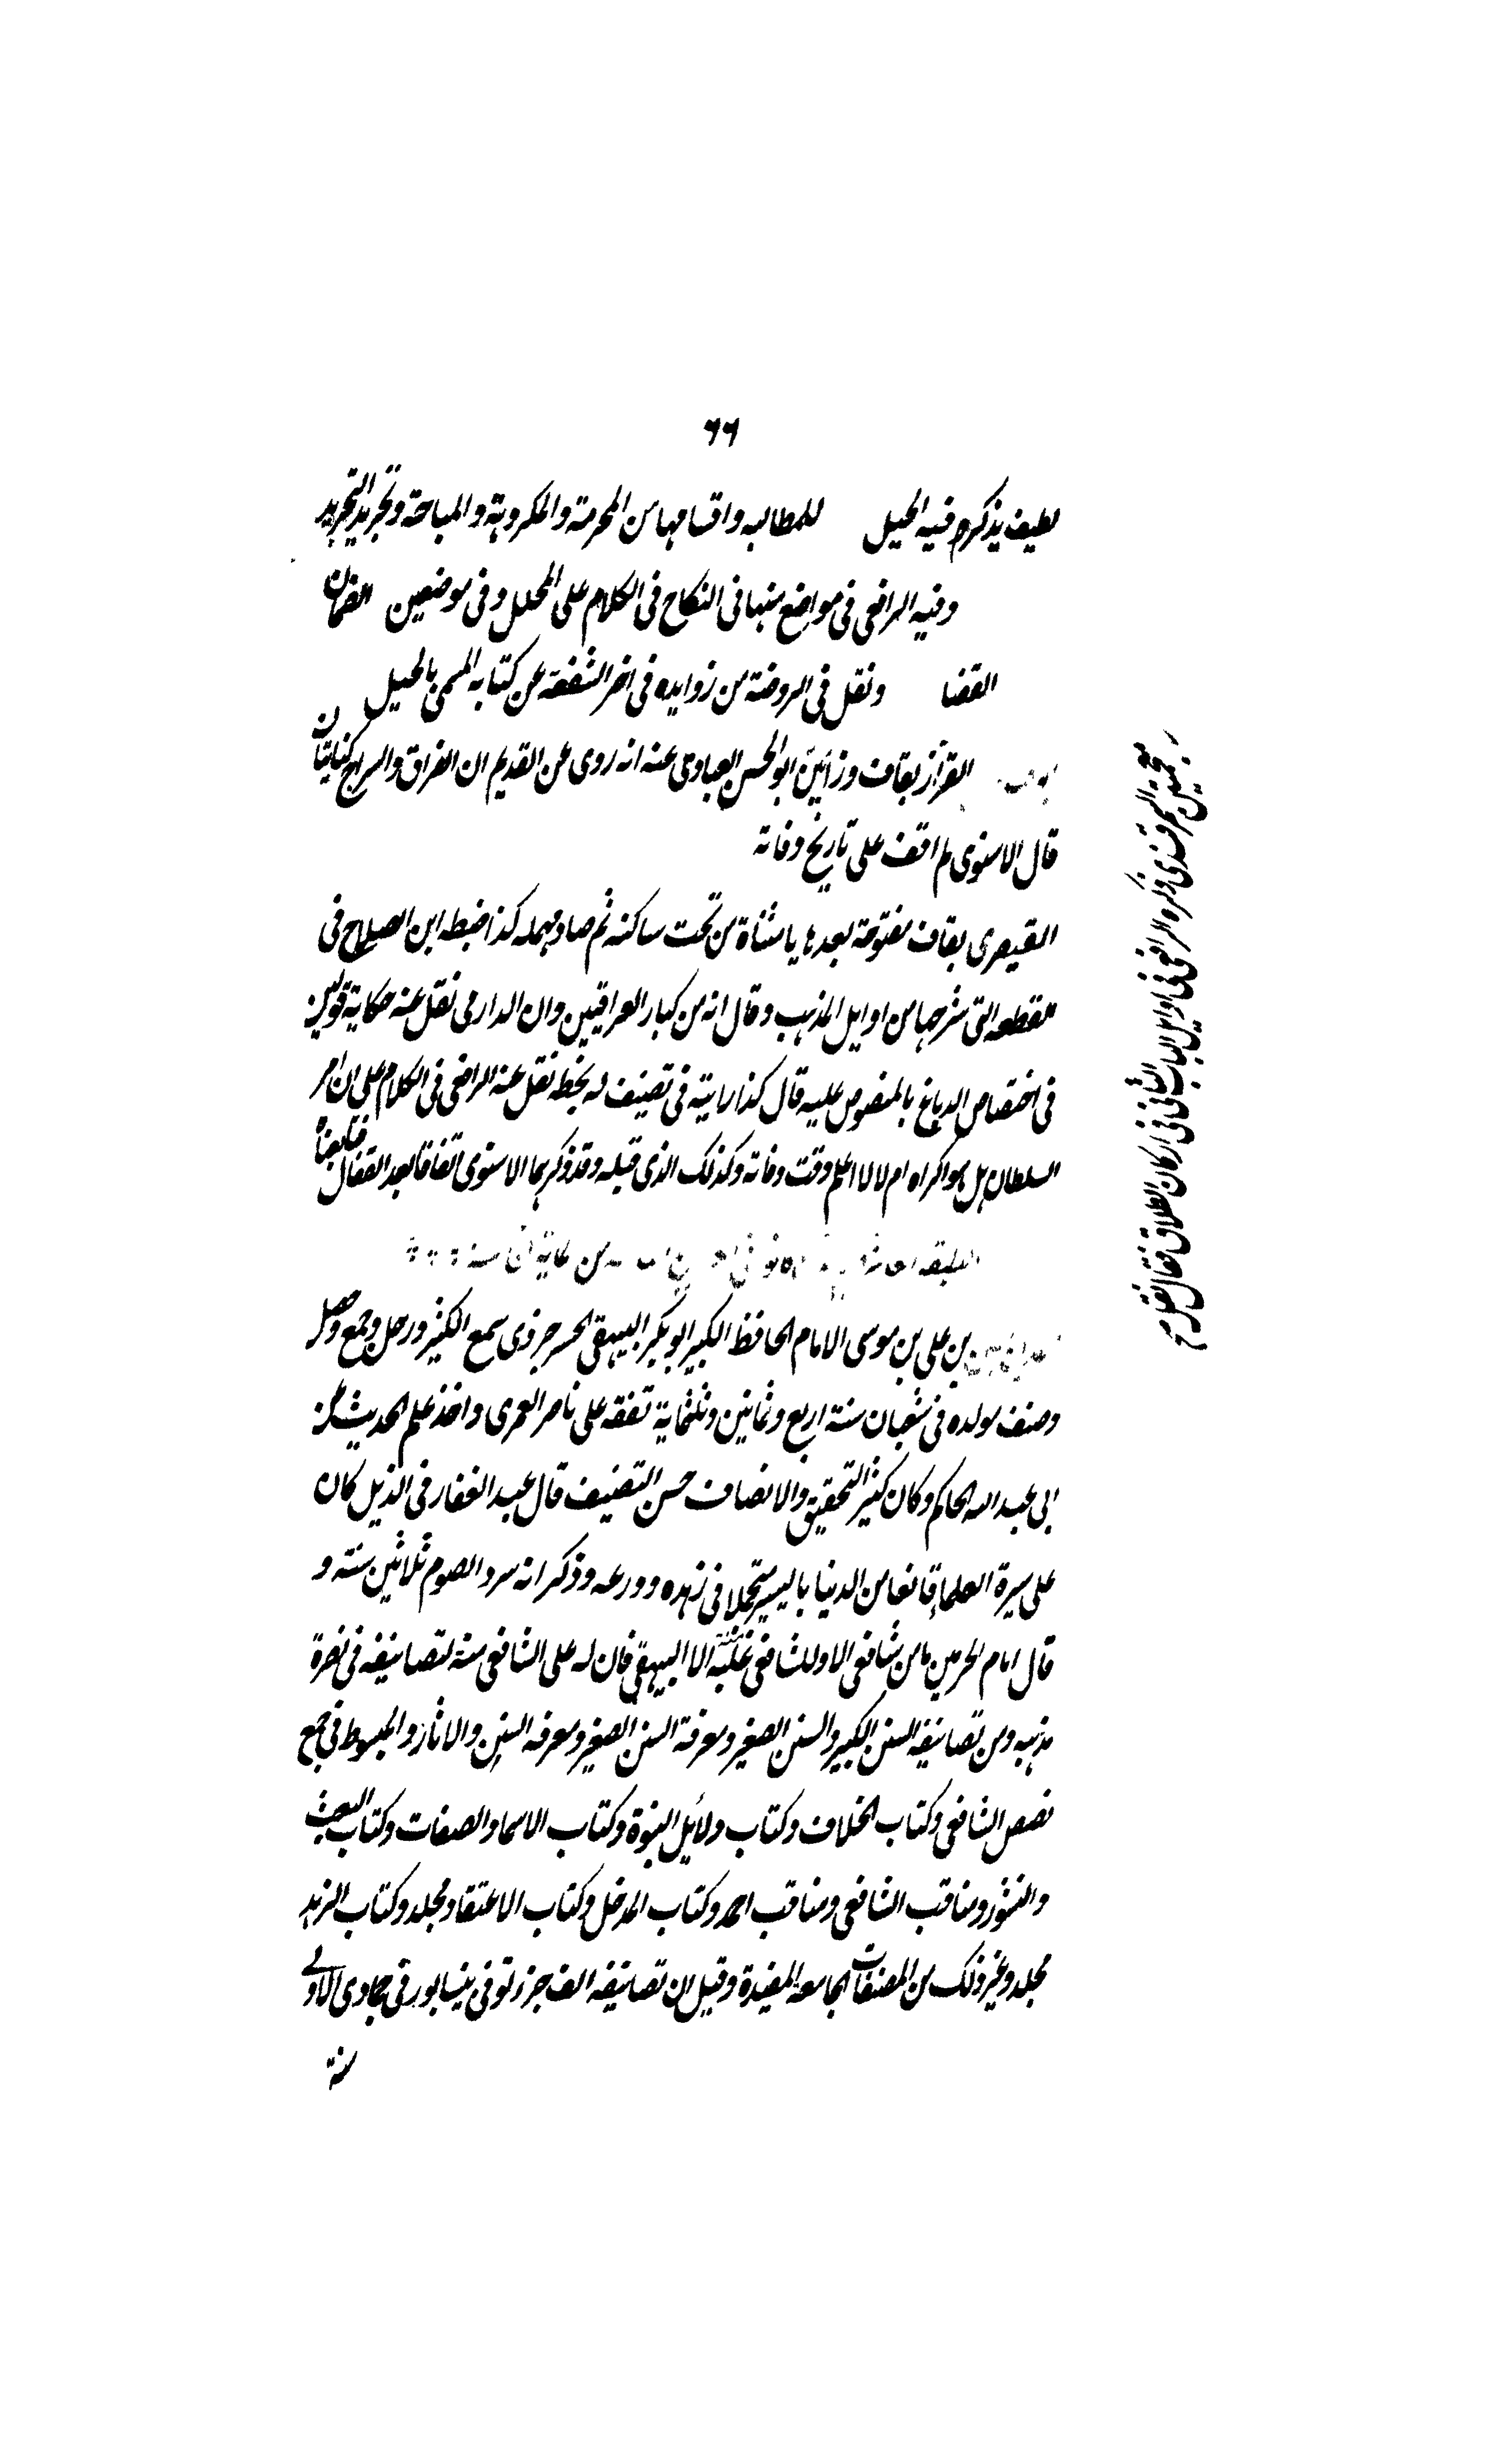 ٦٦
لطيف يذكر فيه الحيل للمطالبه واقسامها من المحرمة والمكروهة والمباحة وتجريد التجريد
وفيه الرافعى فى مواضع منها فى النكاح فى الكلام على المحلل وفى موضعين الضمان
القضا ونقل فى الروضة من زوايده فى اخر الشفعة عن كتابه المسمى بالحيل
القزاز بقاف وزائين ابو الحسن العبادى عنه انه روى عن القديم ان الفراق والسراح كنايتان
قال الاسنوى لم اقف على تاريخ وفاته
القيصرى بقاف مفتوحة بعدها يا مثناة من تحت ساكنه ثم صاد مهمله كذا ضبطه ابن الصلاح فى
القطعه التى شرحها من اوايل المذهب وقال انه من كبار العراقيين وان الدارمى نقل عنه حكاية قولين
فى اختصاص الدباغ بالمنصوص عليه قال كذا رايته فى تصنيف له بخطه نقل عنه الرافعى فى الكلام على ان امر
السلطان هل هو اكراه ام لا لا اعلم وقت وفاته وكذلك الذى قبله وقد ذكرهما الاسنوى اتفاقا بعد القفال فتابعناه
الطبقه
بن على بن موسى الامام الحافظ الكبير ابو بكر البيهقى الخسروجردى سمع الكثير ورحل وجمع وحصل
وصنف مولده فى شعبان سنة اربع وثمانين وثلثماية تفقه على ناصر العمرى واخذ علم الحديث عن
ابى عبد الله الحاكم وكان كثير التحقيق والانصاف حسن التصنيف قال عبد الغفار فى الذيل كان
على سيرة العلماء قانعا من الدنيا باليسير متجملا فى زهده وورعه وذكر انه سرد الصوم ثلاثين سنة و
قال امام الحرمين ما من شافعى الا وللشافعى عليه منة الا البيهقى فان له على الشافعى منة لتصانيفه فى نصرة
مذهبه ومن تصانيفه السنن الكبير والسنن الصغير ومعرفة السنن الصغير ومعرفه السنن والاثار والمبسوط فى جمع
نصوص الشافعى وكتاب الخلاف وكتاب دلائل النبوة وكتاب الاسما والصفات وكتاب البعث
والنشور ومناقب الشافعى ومناقب احمد وكتاب المدخل وكتاب الاعتقاد مجلد وكتاب الزهد
مجلد وغير ذلك من المصنفات الجامعة المفيدة وقيل ان تصانيفه الف جزء توفى بنيسابور فى جمادى الاولى
سنة
السمرقندى ذكره الرافعى فى اوايل الباب الثانى فى اركان الطلاق فقال نقل